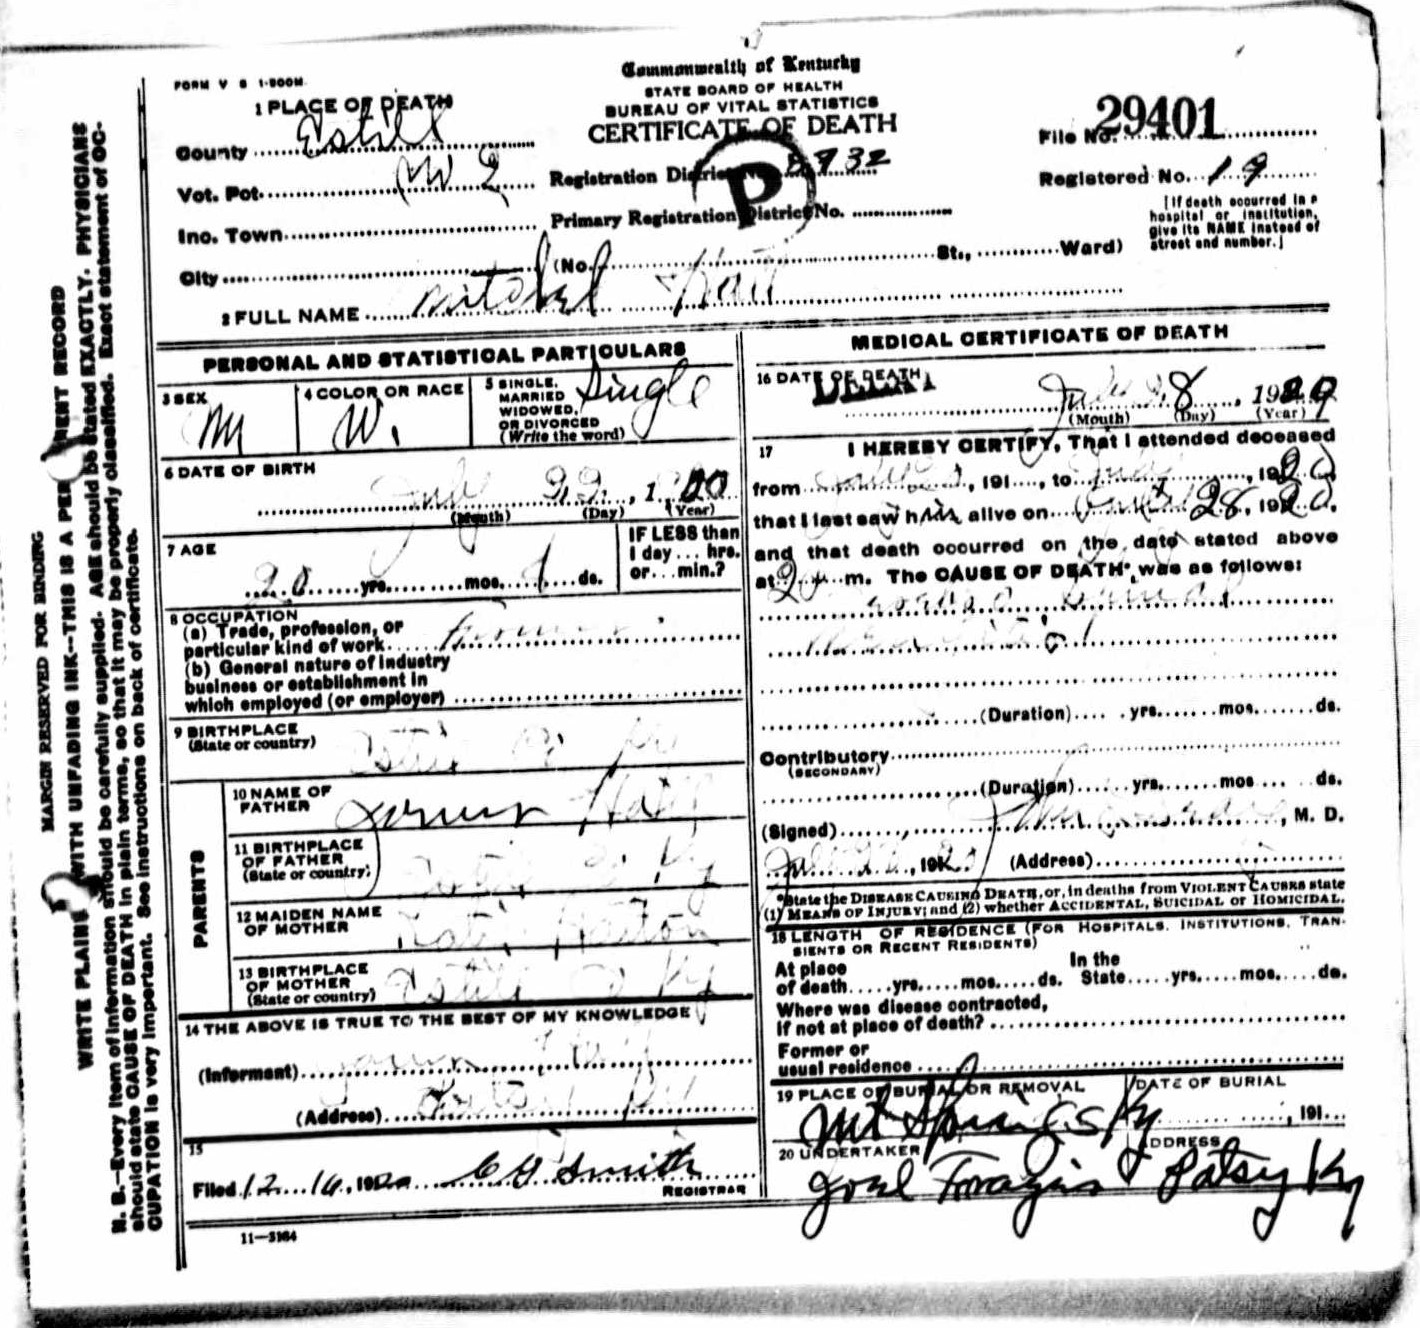 FORM V S 1-300M.
Commonwealth of Kentucky
STATE BOARD OF HEALTH
BUREAU OF VITAL STATISTICS
CERTIFICATE OF DEATH
1 PLACE OF DEATH
County Estill
Vot. Pct.
Inc. Town
City
File No. 29401
Registration District No. 5732
Registered No. 19
Primary Registration District No.
P
[If death occurred in a
hospital or institution,
give its NAME instead of
street and number.]
(No. St., Ward)
2 FULL NAME Mitchel
PERSONAL AND STATISTICAL PARTICULARS
3 SEX M
4 COLOR OR RACE W.
5 SINGLE,
MARRIED
WIDOWED,
OR DIVORCED
(Write the word)
Single
6 DATE OF BIRTH
July 22, 1
(Month) (Day) (Year)
7 AGE
20 yrs. mos. ds.
IF LESS than
1 day ... hrs.
or ... min.?
8 OCCUPATION
(a) Trade, profession, or
particular kind of work
(b) General nature of industry
business or establishment in
which employed (or employer)
9 BIRTHPLACE
(State or country)
Estill Co Ky
PARENTS
10 NAME OF
FATHER
11 BIRTHPLACE
OF FATHER
(State or country)
Ky
12 MAIDEN NAME
OF MOTHER
13 BIRTHPLACE
OF MOTHER
(State or country)
Estill Co Ky
14 THE ABOVE IS TRUE TO THE BEST OF MY KNOWLEDGE
(Informant)
(Address) Ky
15
Filed 12 16, 1920 Smith
REGISTRAR
11—3184
MEDICAL CERTIFICATE OF DEATH
16 DATE OF DEATH
DELAY
July 28, 192
(Month) (Day) (Year)
17 I HEREBY CERTIFY, That I attended deceased
from , 191 , to July , 1920
that I last saw him alive on 28, 1920,
and that death occurred on the date stated above
at m. The CAUSE OF DEATH* was as follows:
(Duration) yrs. mos. ds.
Contributory
(SECONDARY)
(Duration) yrs. mos ds.
(Signed) , M. D.
(Address)
*State the DISEASE CAUSING DEATH, or, in deaths from VIOLENT CAUSES state
(1) MEANS OF INJURY; and (2) whether ACCIDENTAL, SUICIDAL or HOMICIDAL.
18 LENGTH OF RESIDENCE (FOR HOSPITALS, INSTITUTIONS, TRAN-
SIENTS OR RECENT RESIDENTS)
At place
of death yrs. mos. ds.
In the
State yrs. mos. ds.
Where was disease contracted,
if not at place of death?
Former or
usual residence
19 PLACE OF BURIAL OR REMOVAL
DATE OF BURIAL
Mt Springs Ky , 191
20 UNDERTAKER
ADDRESS
Joel Patsy Ky
MARGIN RESERVED FOR BINDING
WRITE PLAINLY WITH UNFADING INK—THIS IS A PERMANENT RECORD
N. B.—Every item of information should be carefully supplied. AGE should be stated EXACTLY. PHYSICIANS
should state CAUSE OF DEATH in plain terms, so that it may be properly classified. Exact statement of OC-
CUPATION is very important. See instructions on back of certificate.